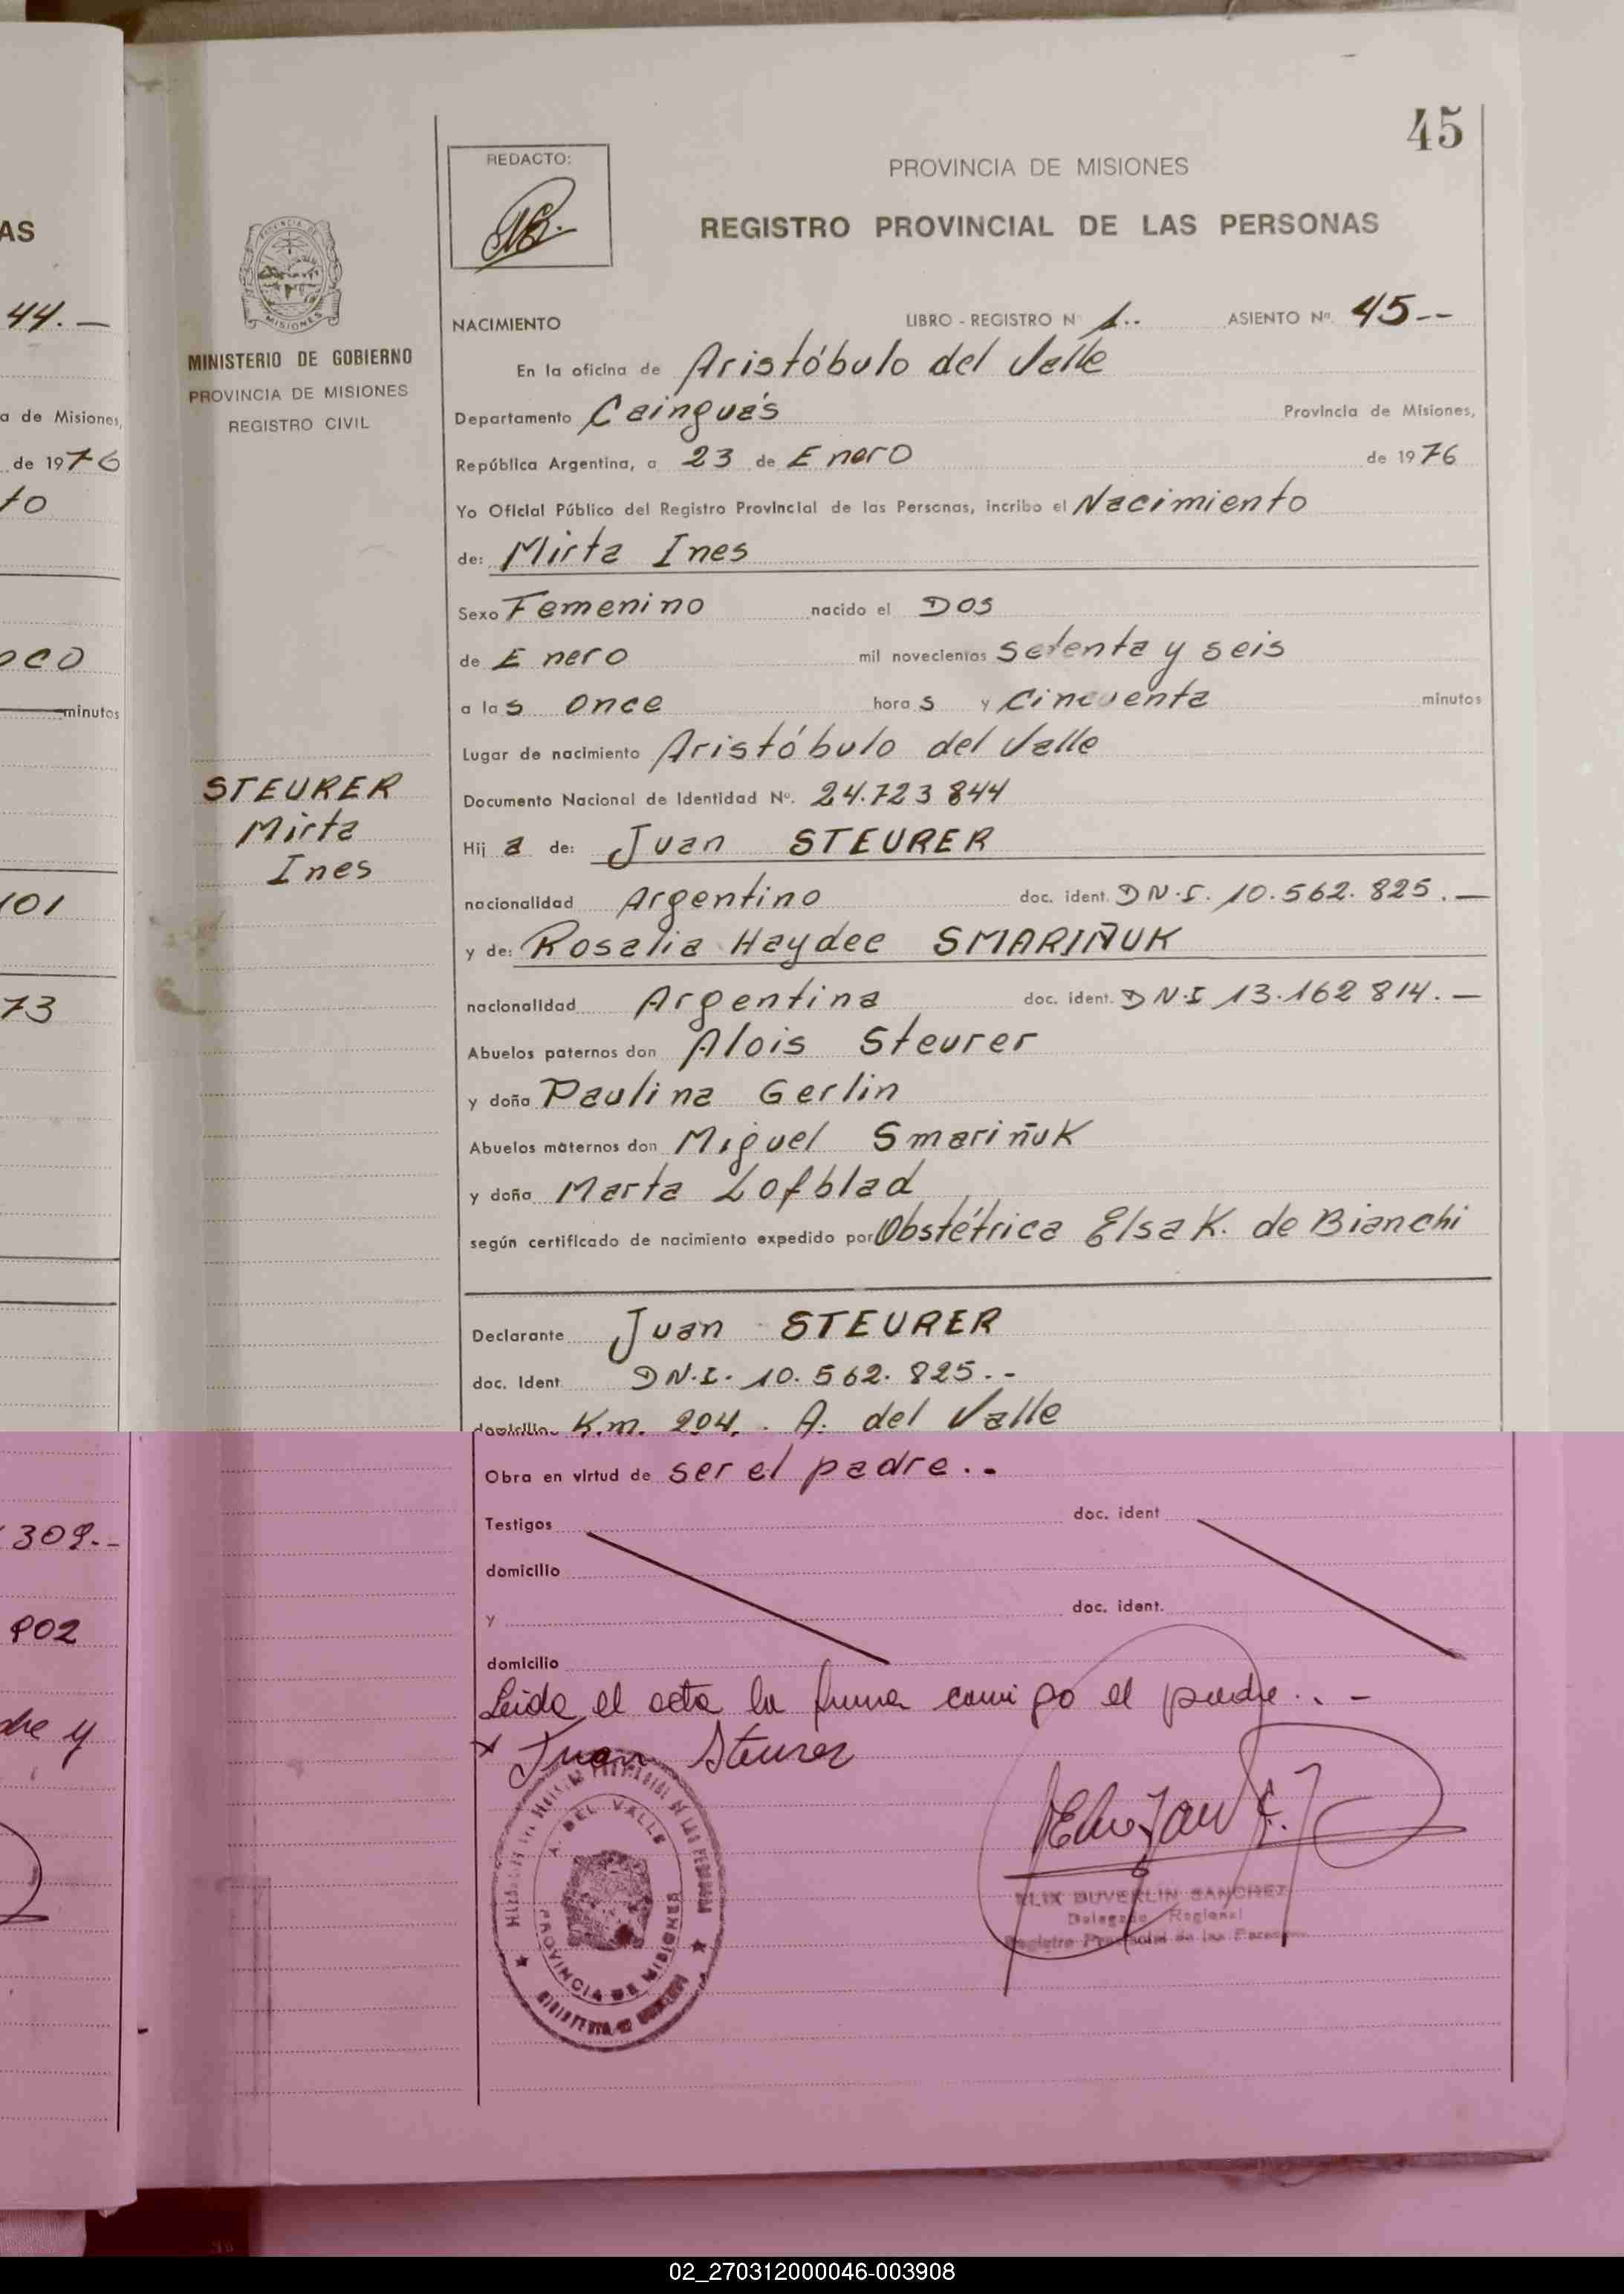 45
REDACTO:
PROVINCIA DE MISIONES
REGISTRO PROVINCIAL DE LAS PERSONAS
AS
44.—
MINISTERIO DE GOBIERNO
PROVINCIA DE MISIONES
REGISTRO CIVIL
a de Misiones,
de 1976
to
oco
minutos
101
73
309.--
902
dre y
STEURER
Mirta
Ines
NACIMIENTO LIBRO - REGISTRO N 1.. ASIENTO Nº. 45--
En la oficina de Aristóbulo del Valle
Departamento Cainguás Provincia de Misiones,
República Argentina, a 23 de Enero de 1976
Yo Oficial Público del Registro Provincial de las Personas, incribo el Nacimiento
de: Mirta Ines
Sexo Femenino nacido el Dos
de Enero mil novecientos setenta y seis
a las once horas y cincuenta minutos
Lugar de nacimiento Aristóbulo del Valle
Documento Nacional de Identidad Nº. 24.723844
Hij a de: Juan STEURER
nacionalidad Argentino doc. ident. DN.I. 10.562.825.—
y de: Rosalia Haydee SMARIÑUK
nacionalidad Argentina doc. ident. DN.I 13.162814.—
Abuelos paternos don Alois Steurer
y doña Paulina Gerlin
Abuelos maternos don Miguel Smariñuk
y doña Marta Lofblad
según certificado de nacimiento expedido por Obstétrica Elsa K. de Bianchi
Declarante Juan STEURER
doc. Ident DN.I. 10.562.825.-
domicilio Km. 204. A. del Valle
Obra en virtud de ser el padre..
Testigos doc. ident
domicilio
y doc. ident.
domicilio
Leida el acta la firma conmigo el padre..-
x Juan Steurer
A. DEL VALLE
PROVINCIA DE MISIONES
ELIX DUVERLIN SANCHEZ
Delegado Regional
Registro Provincial de las Personas
02_270312000046-003908